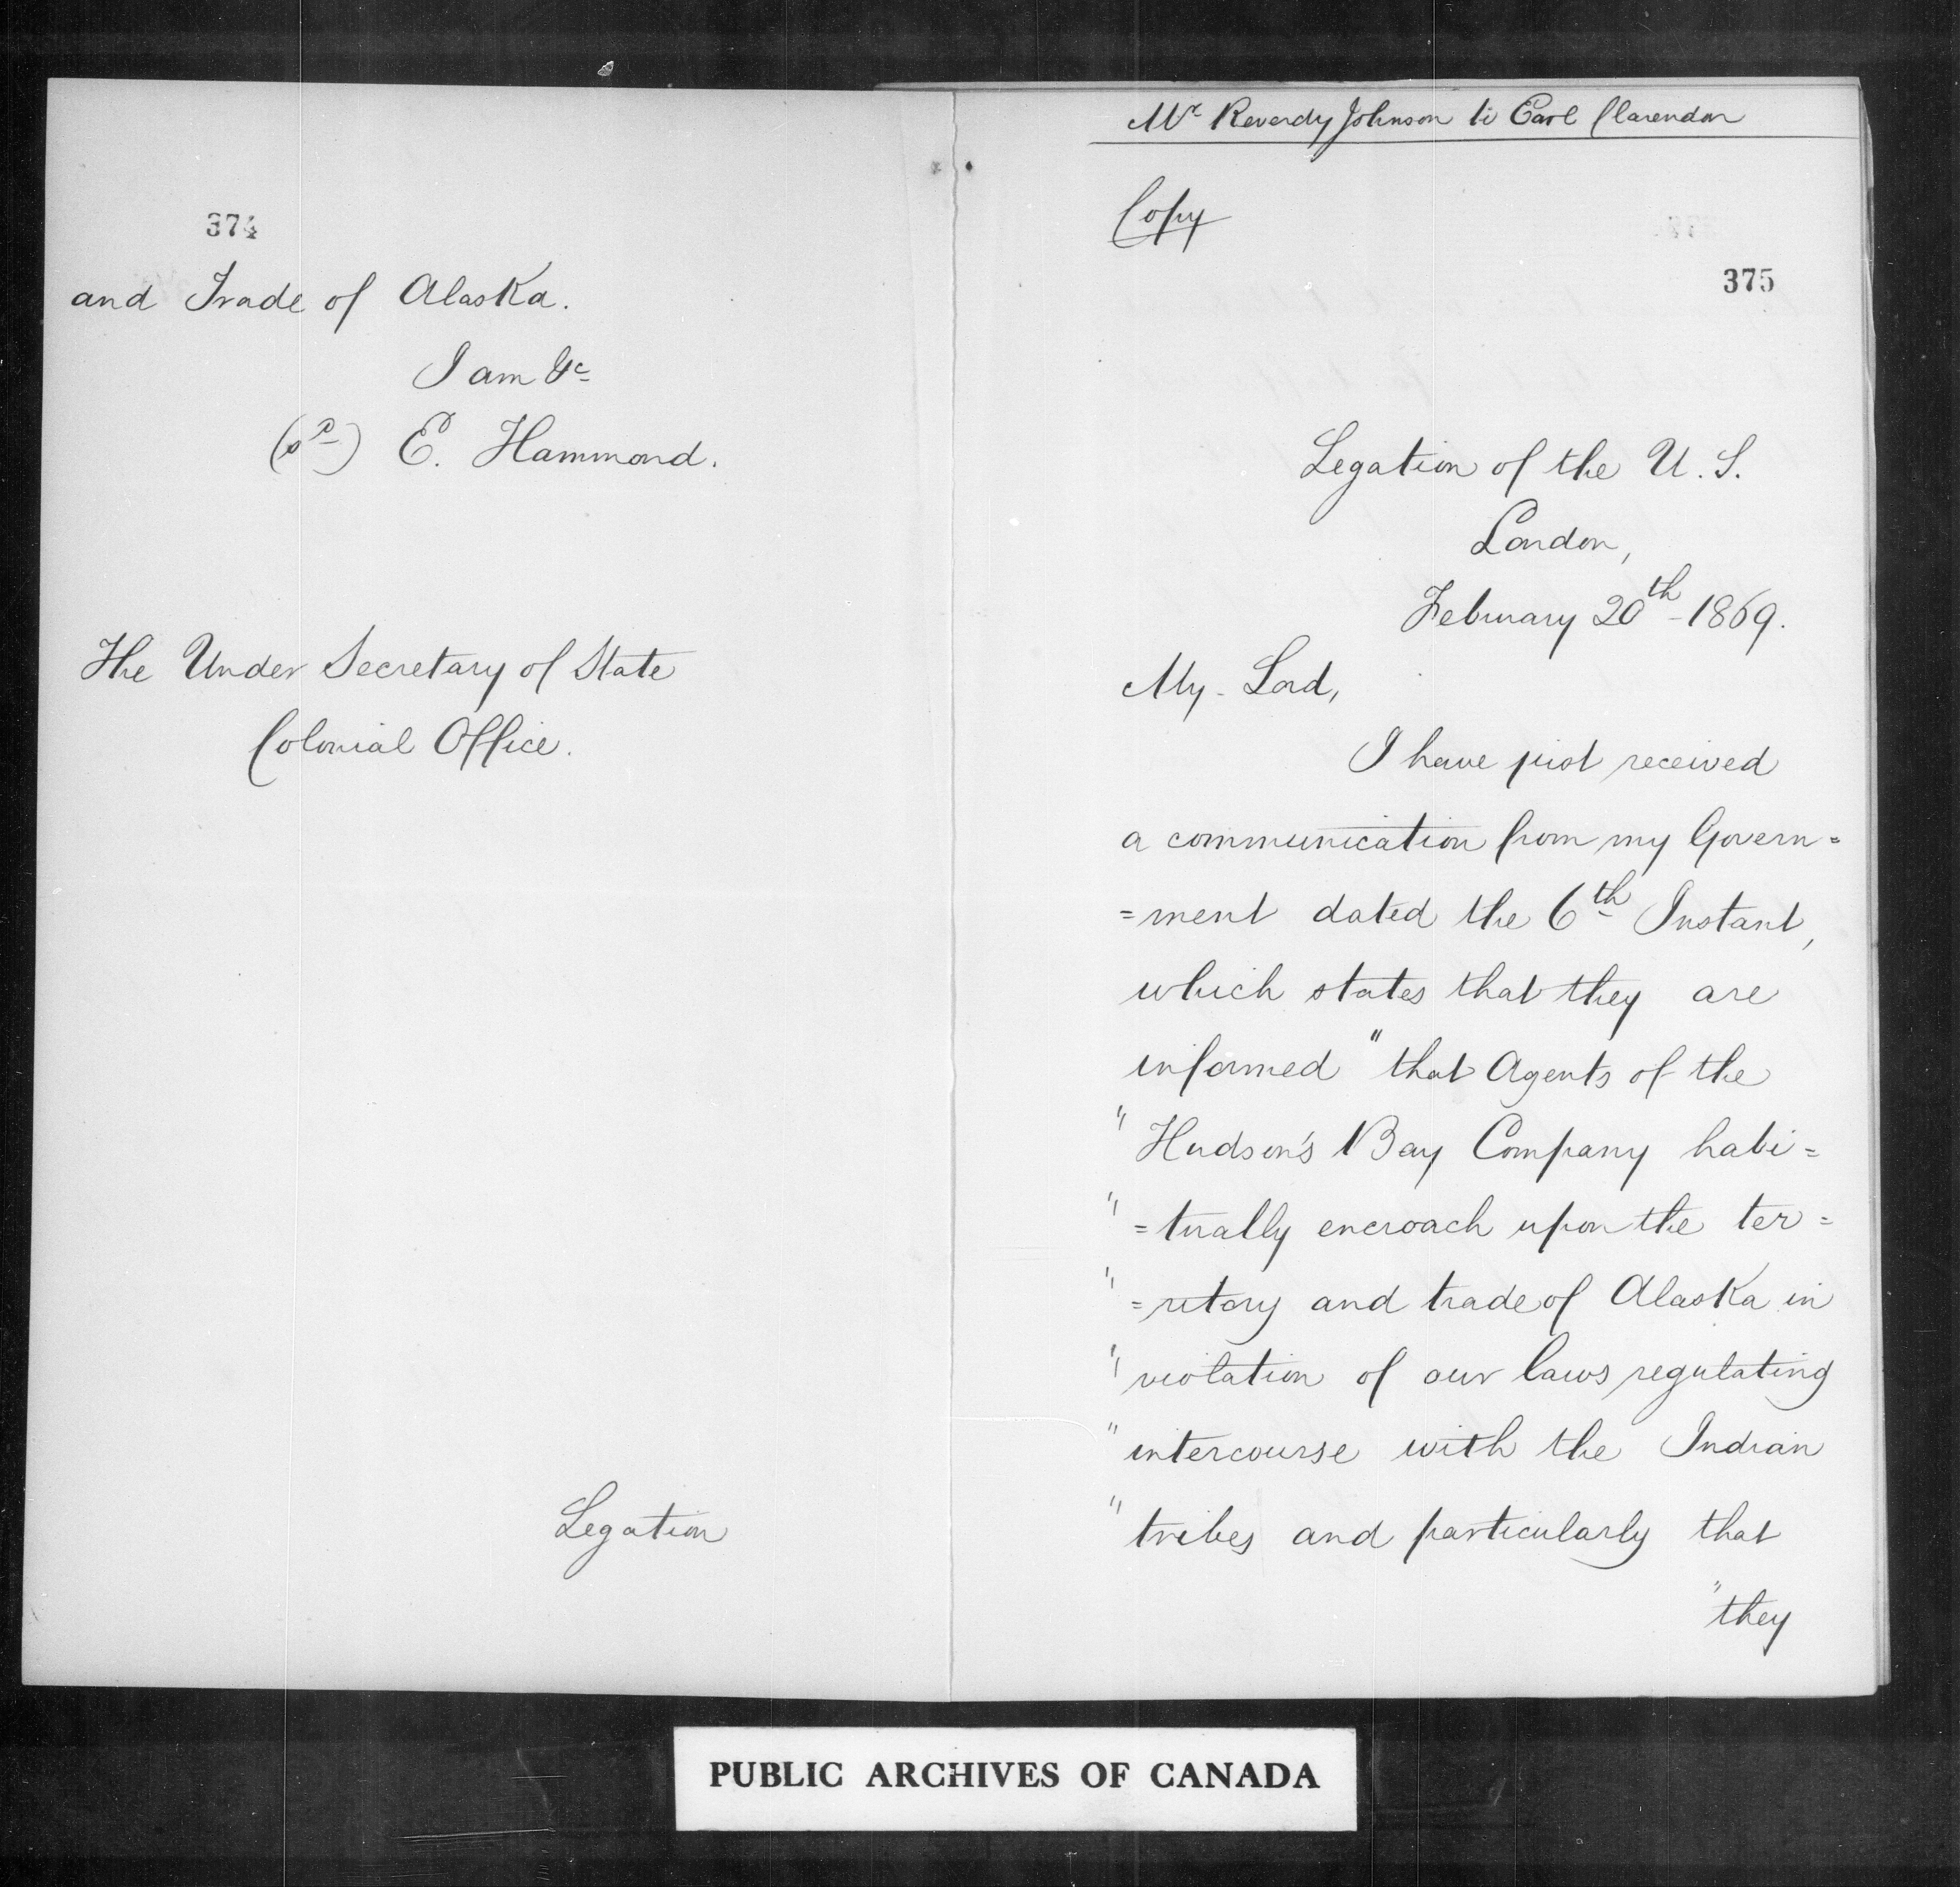 374
and Trade of Alaska.
I am &c
(sd) E. Hammond.
The Under Secretary of State
Colonial Office.
Legation
Mr Reverdy Johnson to Earl Clarendon
Copy
375
Legation of the U.S.
London,
February 20th - 1869.
My Lord,
I have just received
a communication from my Govern=
=ment dated the 6th Instant,
which states that they are
informed "that Agents of the
"Hudson's Bay Company habi=
"=tually encroach upon the ter=
"=ritory and trade of Alaska in
"violation of our laws regulating
"intercourse with the Indian
"tribes and particularly that
"they
PUBLIC ARCHIVES OF CANADA